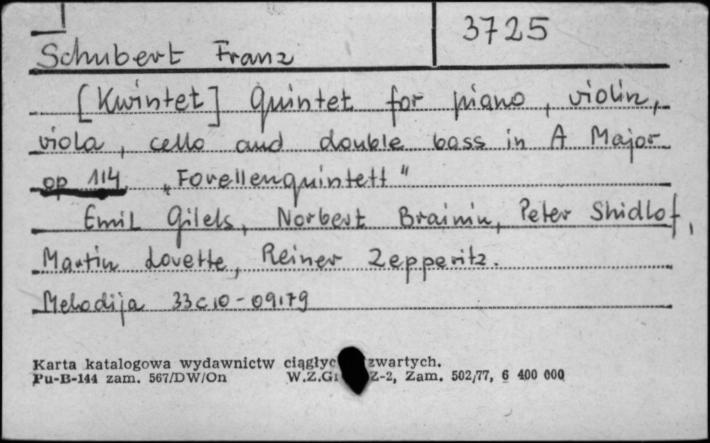 3725
Schubert Franz
[Kwintet] Quintet for piano, violin,
viola, cello and double bass in A Major
op 114 „Forellenquintett"
Emil Gilels, Norbert Brainin, Peter Shidlof,
Martin Lovette, Reiner Zepperitz.
Melodija 33c10-09179
Karta katalogowa wydawnictw zwartych.
Pu-B-144 zam. 567/DW/On W.Z.Gr Z-2, Zam. 502/77, 6 400 000